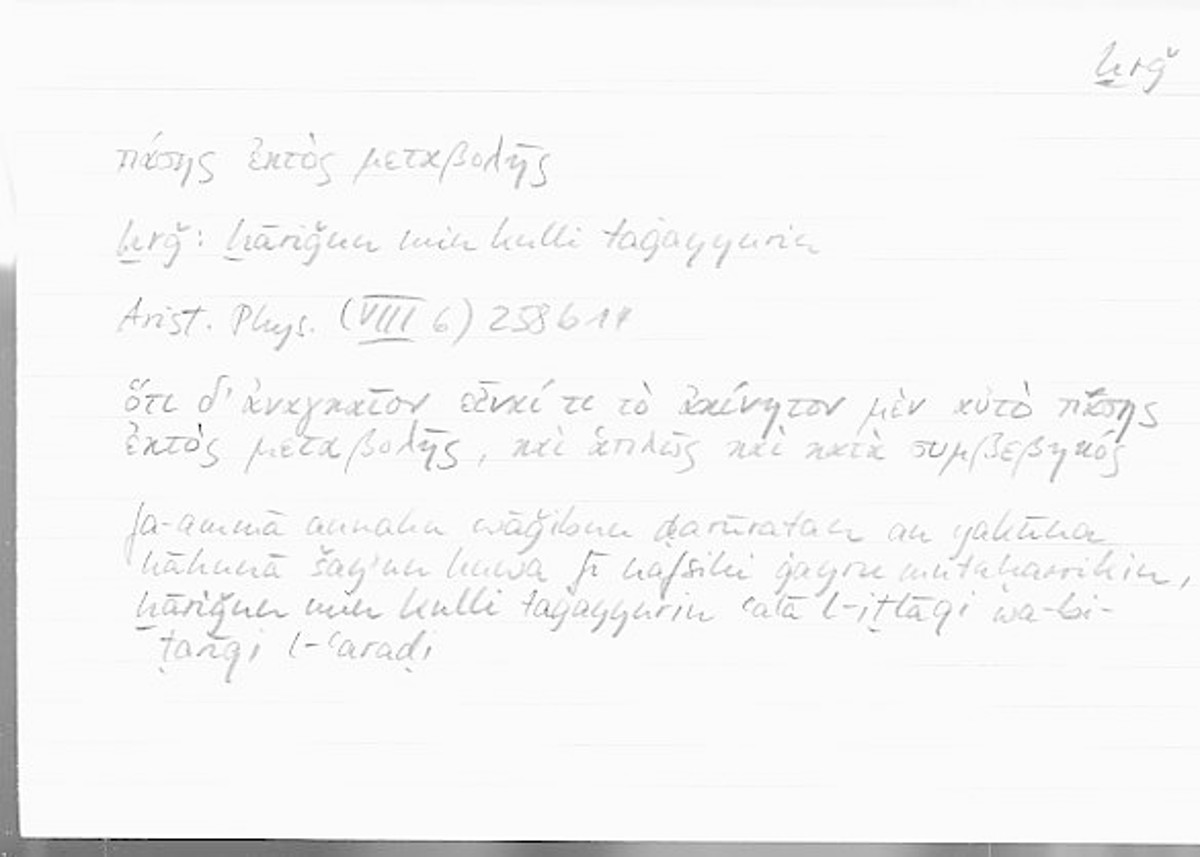 ḫrǧ
πάσης ἐκτὸς μεταβολῆς
ḫrǧ: ḫāriǧun min kulli taġayyurin
Arist. Phys. (VIII 6) 258b14
ὅτι δ' ἀναγκαῖον εἶναί τι τὸ ἀκίνητον μὲν αὐτὸ πάσης
ἐκτὸς μεταβολῆς, καὶ ἁπλῶς καὶ κατὰ συμβεβηκός
fa-ammā annahu wāǧibun ḍarūratan an yakūna
hāhunā šayʾun huwa fī nafsihi ġayru mutaḥarrikin,
ḫāriǧun min kulli taġayyurin ʿalā l-iṭlāqi wa-bi-
ṭarīqi l-ʿaraḍi